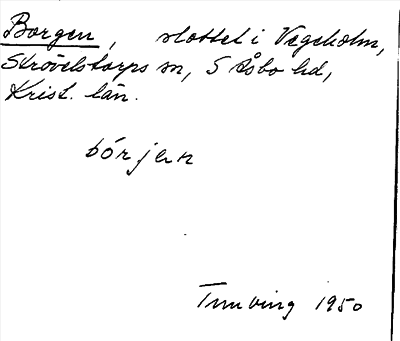 Borgen, slottet i Vegeholm,
Strövelstorps sn, S Åsbo hd,
Krist. län.
bórjen
Tunving 1950